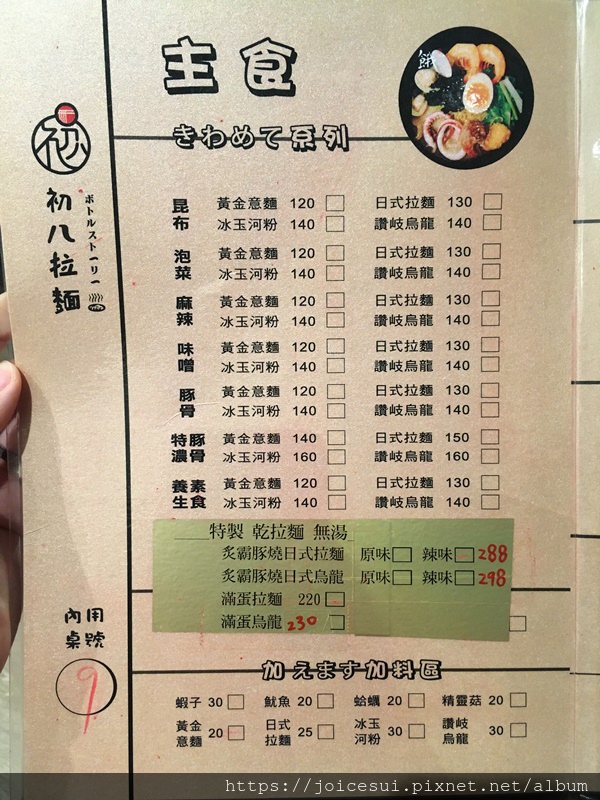 主食
餓
きわめて系列
初
初八拉麵
ボトルストーリー
昆布 黃金意麵 120 日式拉麵 130
冰玉河粉 140 讚岐烏龍 140
泡菜 黃金意麵 120 日式拉麵 130
冰玉河粉 140 讚岐烏龍 140
麻辣 黃金意麵 120 日式拉麵 130
冰玉河粉 140 讚岐烏龍 140
味噌 黃金意麵 120 日式拉麵 130
冰玉河粉 140 讚岐烏龍 140
豚骨 黃金意麵 120 日式拉麵 130
冰玉河粉 140 讚岐烏龍 140
特濃豚骨 黃金意麵 140 日式拉麵 150
冰玉河粉 160 讚岐烏龍 160
養生素食 黃金意麵 120 日式拉麵 130
冰玉河粉 140 讚岐烏龍 140
特製 乾拉麵 無湯
炙霸豚燒日式拉麵 原味 辣味 288
炙霸豚燒日式烏龍 原味 辣味 298
滿蛋拉麵 220
滿蛋烏龍 230
內用桌號
9
加えます加料區
蝦子 30 魷魚 20 蛤蠣 20 精靈菇 20
黃金意麵 20 日式拉麵 25 冰玉河粉 30 讚岐烏龍 30
https://joicesui.pixnet.net/album